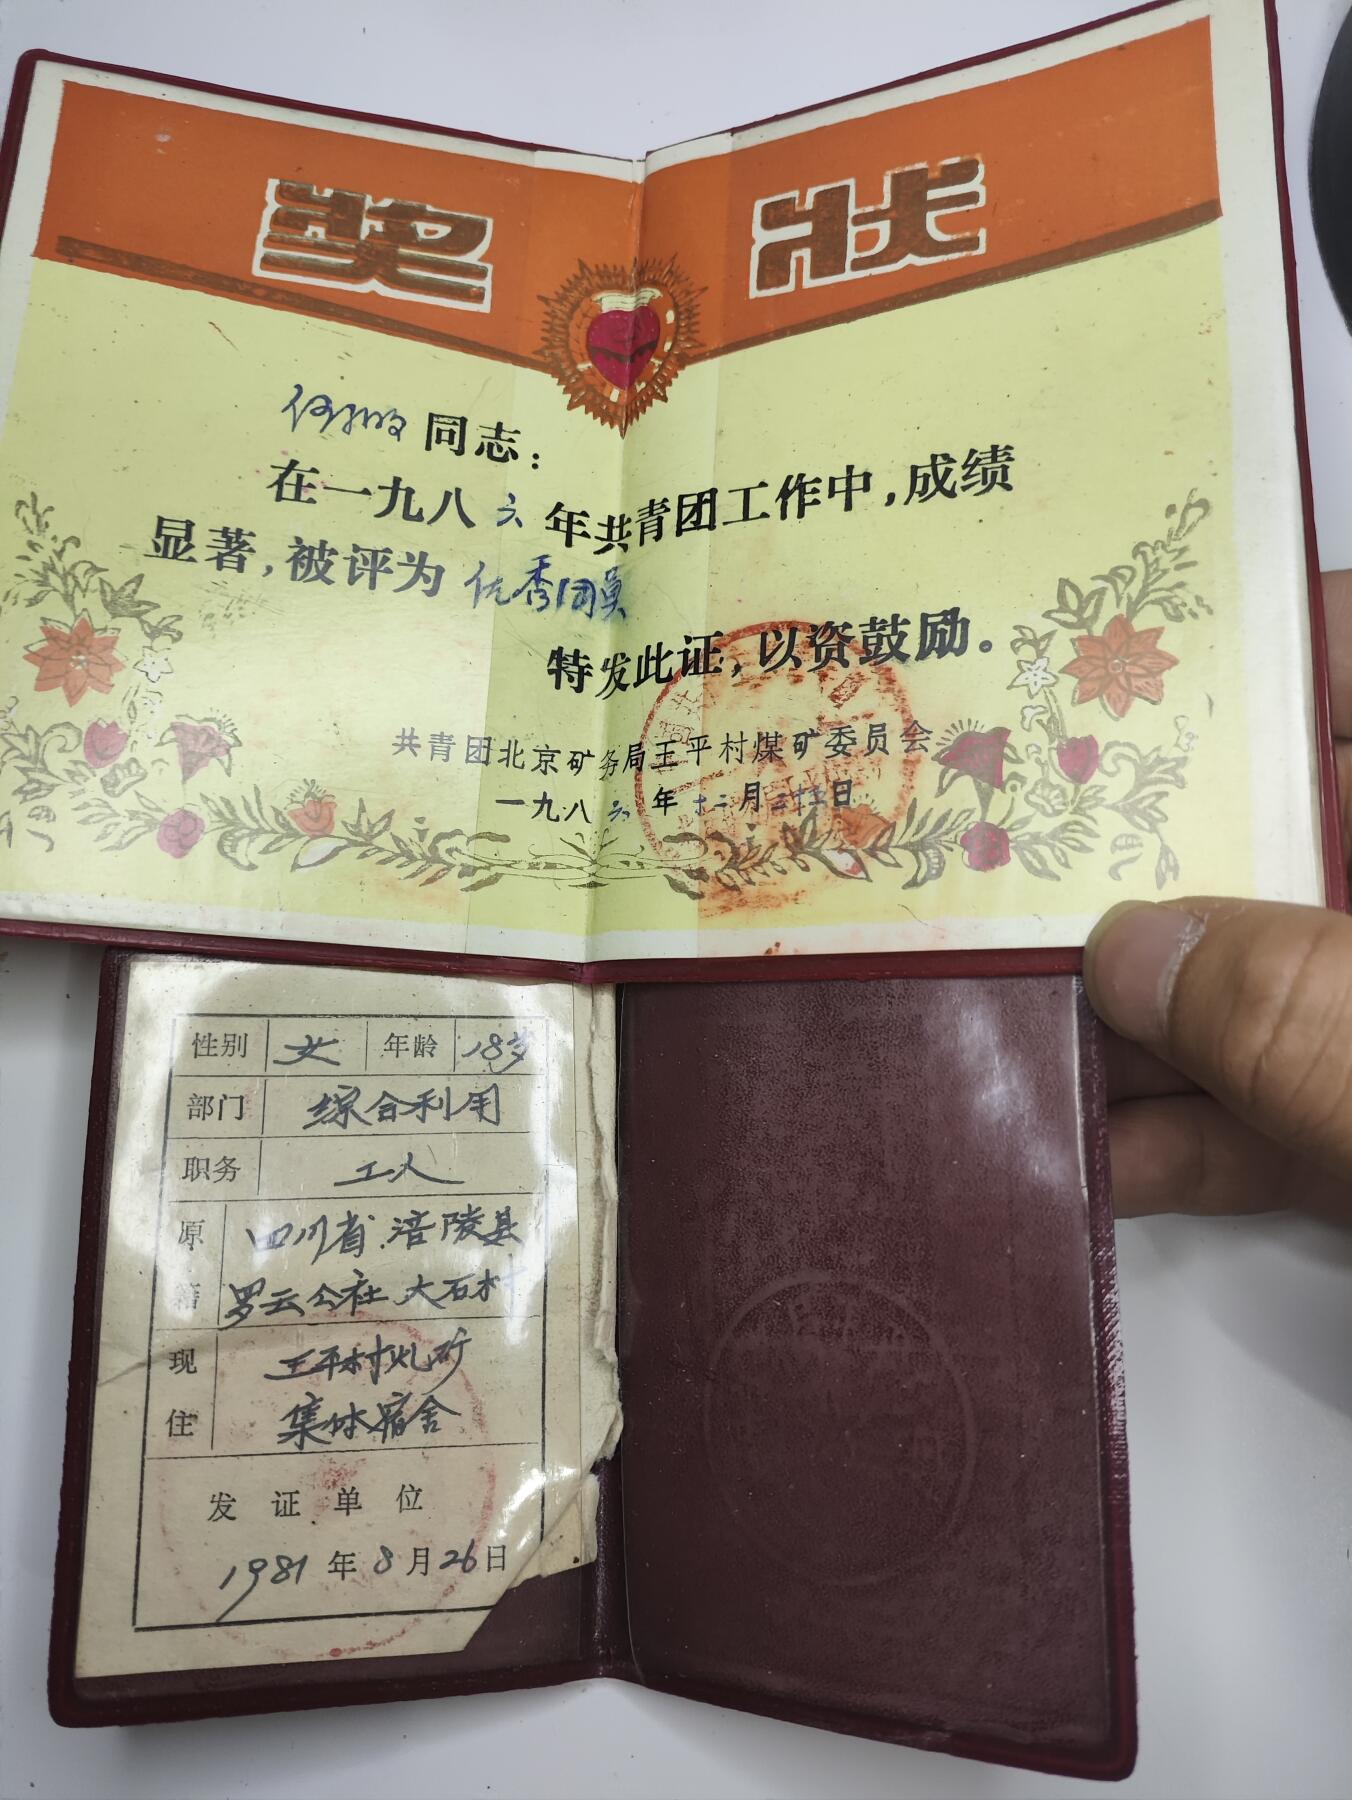 奖状
何 同志：
在一九八六年共青团工作中，成绩
显著，被评为 优秀团员
特发此证，以资鼓励。
共青团北京矿务局王平村煤矿委员会
一九八六年十二月二十三日
性别 女 年龄 18岁
部门 综合利用
职务 工人
原籍 四川省涪陵县
罗云公社大石村
现住 王平村煤矿
集体宿舍
发证单位
1981年8月26日